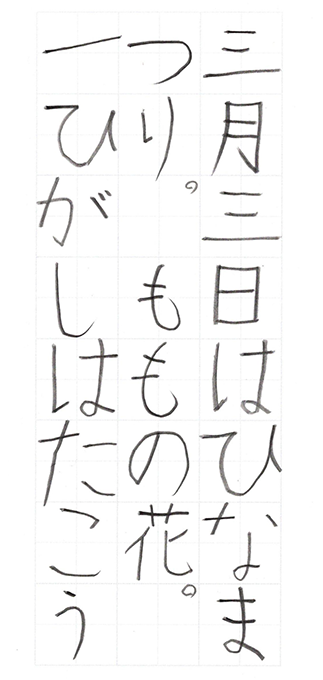 三月三日はひなま
つり。もものの花。
一ひがしはたこう